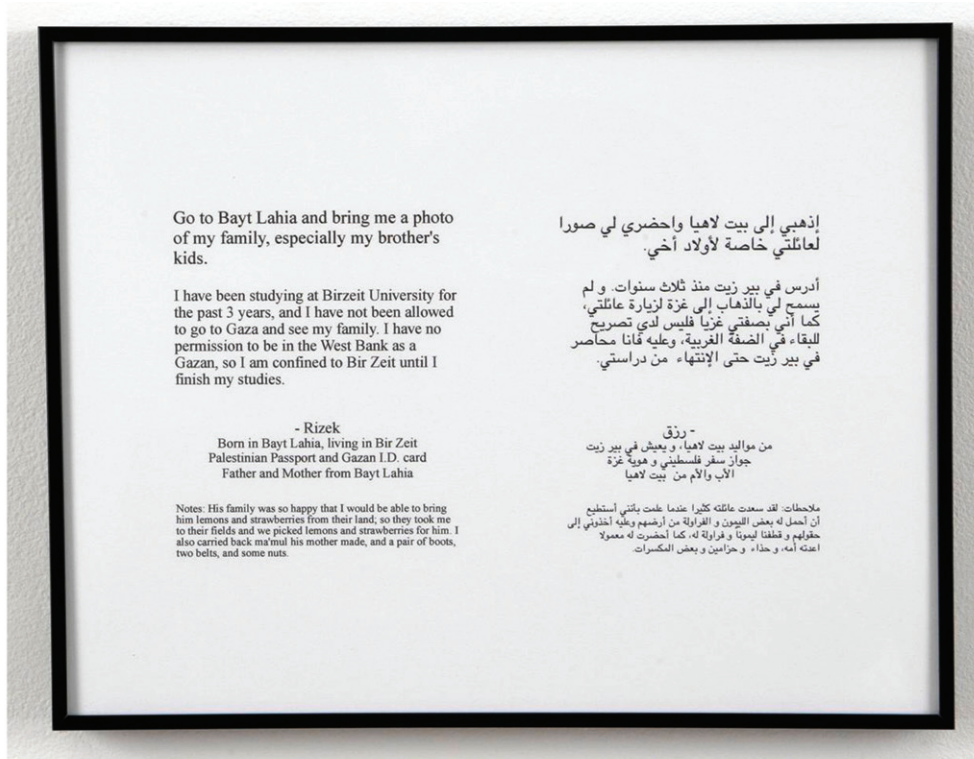 Go to Bayt Lahia and bring me a photo
of my family, especially my brother's
kids.
I have been studying at Birzeit University for
the past 3 years, and I have not been allowed
to go to Gaza and see my family. I have no
permission to be in the West Bank as a
Gazan, so I am confined to Bir Zeit until I
finish my studies.
- Rizek
Born in Bayt Lahia, living in Bir Zeit
Palestinian Passport and Gazan I.D. card
Father and Mother from Bayt Lahia
Notes: His family was so happy that I would be able to bring
him lemons and strawberries from their land; so they took me
to their fields and we picked lemons and strawberries for him. I
also carried back ma'mul his mother made, and a pair of boots,
two belts, and some nuts.
إذهبي إلى بيت لاهيا واحضري لي صورا
لعائلتي خاصة لأولاد أخي.
أدرس في بير زيت منذ ثلاث سنوات. و لم
يسمح لي بالذهاب إلى غزة لزيارة عائلتي،
كما أني بصفتي غزيا فليس لدي تصريح
للبقاء في الضفة الغربية، وعليه فانا محاصر
في بير زيت حتى الإنتهاء من دراستي.
- رزق
من مواليد بيت لاهيا، و يعيش في بير زيت
جواز سفر فلسطيني و هوية غزة
الأب والأم من بيت لاهيا
ملاحظات: لقد سعدت عائلته كثيرا عندما علمت بأنني أستطيع
أن أحمل له بعض الليمون و الفراولة من أرضهم وعليه أخذوني إلى
حقولهم و قطفنا ليمونا و فراولة له، كما أحضرت له معمولا
اعدته أمه، و حذاء و حزامين و بعض المكسرات.